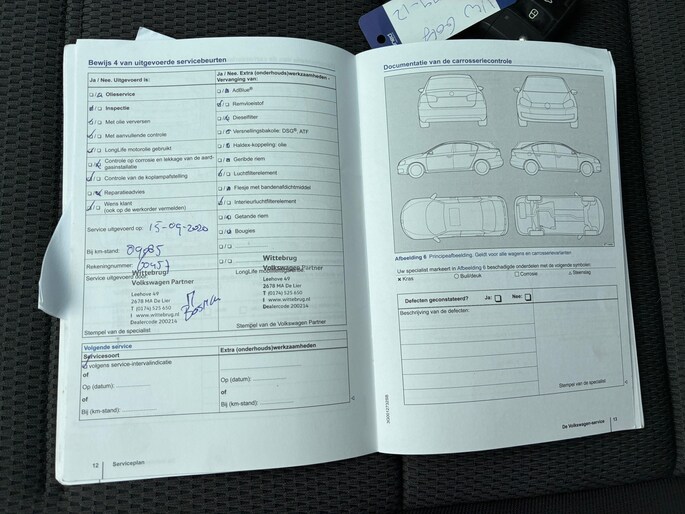 VW Golf
Bewijs 4 van uitgevoerde servicebeurten
Ja / Nee. Uitgevoerd is:
Ja / Nee. Extra (onderhouds)werkzaamheden -
Vervanging van:
Olieservice
AdBlue®
Inspectie
Remvloeistof
Met olie verversen
Dieselfilter
Met aanvullende controle
Versnellingsbakolie: DSG®, ATF
LongLife motorolie gebruikt
Haldex-koppeling: olie
Controle op corrosie en lekkage van de aard-
gasinstallatie
Geribde riem
Controle van de koplampafstelling
Luchtfilterelement
Reparatieadvies
Flesje met bandenafdichtmiddel
Wens klant
(ook op de werkorder vermelden)
Interieurluchtfilterelement
Getande riem
Bougies
Service uitgevoerd op: 15-09-2020
Bij km-stand:
Rekeningnummer:
Service uitgevoerd door:
Wittebrug
Volkswagen Partner
Leehove 49
2678 MA De Lier
T (0174) 525 650
I www.wittebrug.nl
Dealercode 200214
Stempel van de specialist
Wittebrug
Volkswagen Partner
Leehove 49
2678 MA De Lier
T (0174) 525 650
I www.wittebrug.nl
Dealercode 200214
Stempel van de Volkswagen Partner
Volgende service
Servicesoort
Extra (onderhouds)werkzaamheden
volgens service-intervalindicatie
of
Op (datum):
of
Bij (km-stand):
Op (datum):
of
Bij (km-stand):
12 Serviceplan
Documentatie van de carrosseriecontrole
Afbeelding 6 Principeafbeelding. Geldt voor alle wagens en carrosserievarianten.
Uw specialist markeert in Afbeelding 6 beschadigde onderdelen met de volgende symbolen:
× Kras ○ Buil/deuk □ Corrosie Steenslag
Defecten geconstateerd? Ja: Nee:
Beschrijving van de defecten:
Stempel van de specialist
De Volkswagen-service 13